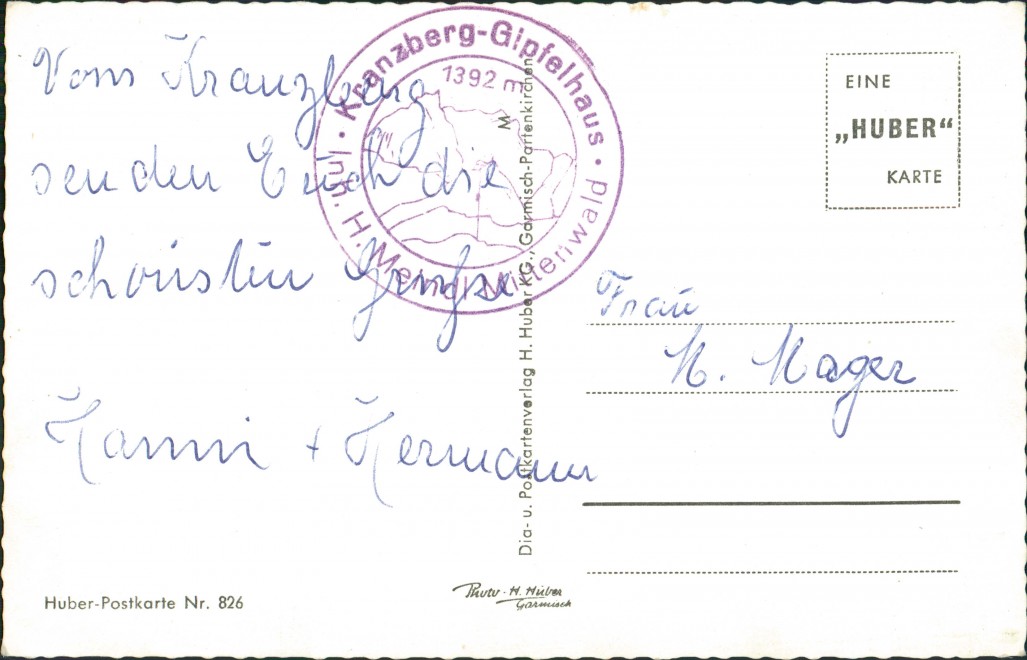 Vom Kranzberg
senden Euch die
schönsten Grüße
Hanni + Hermann
Kranzberg-Gipfelhaus
1392 m
Inh. H. Mittenwald
M
Dia- u. Postkartenverlag H. Huber KG., Garmisch-Partenkirchen
EINE
„HUBER“
KARTE
Frau
M. Mager
Huber-Postkarte Nr. 826
Photo - H. Huber
Garmisch